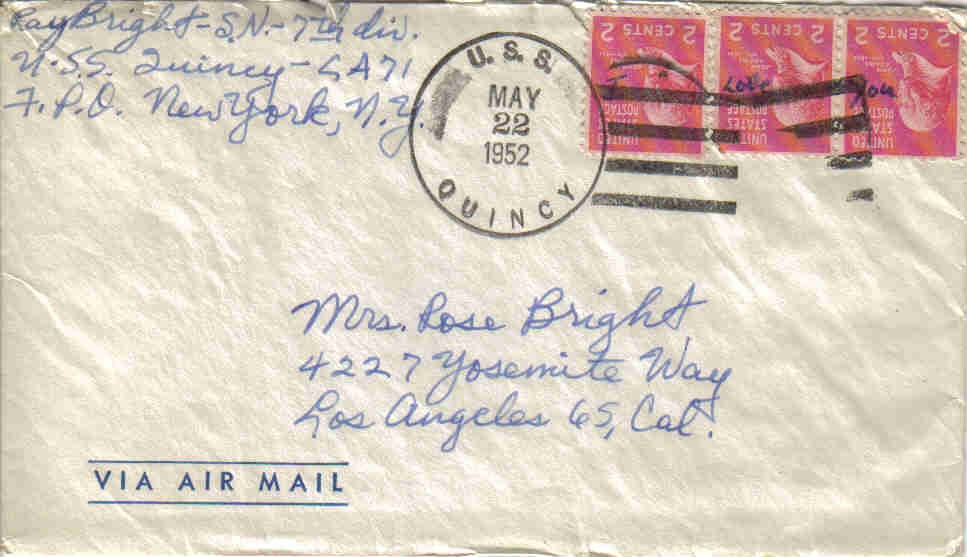 Ray Bright - S.N. - 7th div.
U.S.S. Quincy - CA71
F.P.O. New York, N.Y.
U.S.S.
MAY
22
1952
QUINCY
2 CENTS 2
UNITED
STATES
POSTAGE
I
2 CENTS 2
UNITED
STATES
POSTAGE
Love
2 CENTS 2
UNITED
STATES
POSTAGE
You
Mrs. Rose Bright
4227 Yosemite Way
Los Angeles 65, Cal.
VIA AIR MAIL